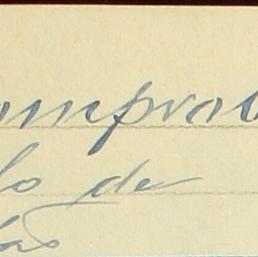 omprob
lo de
las